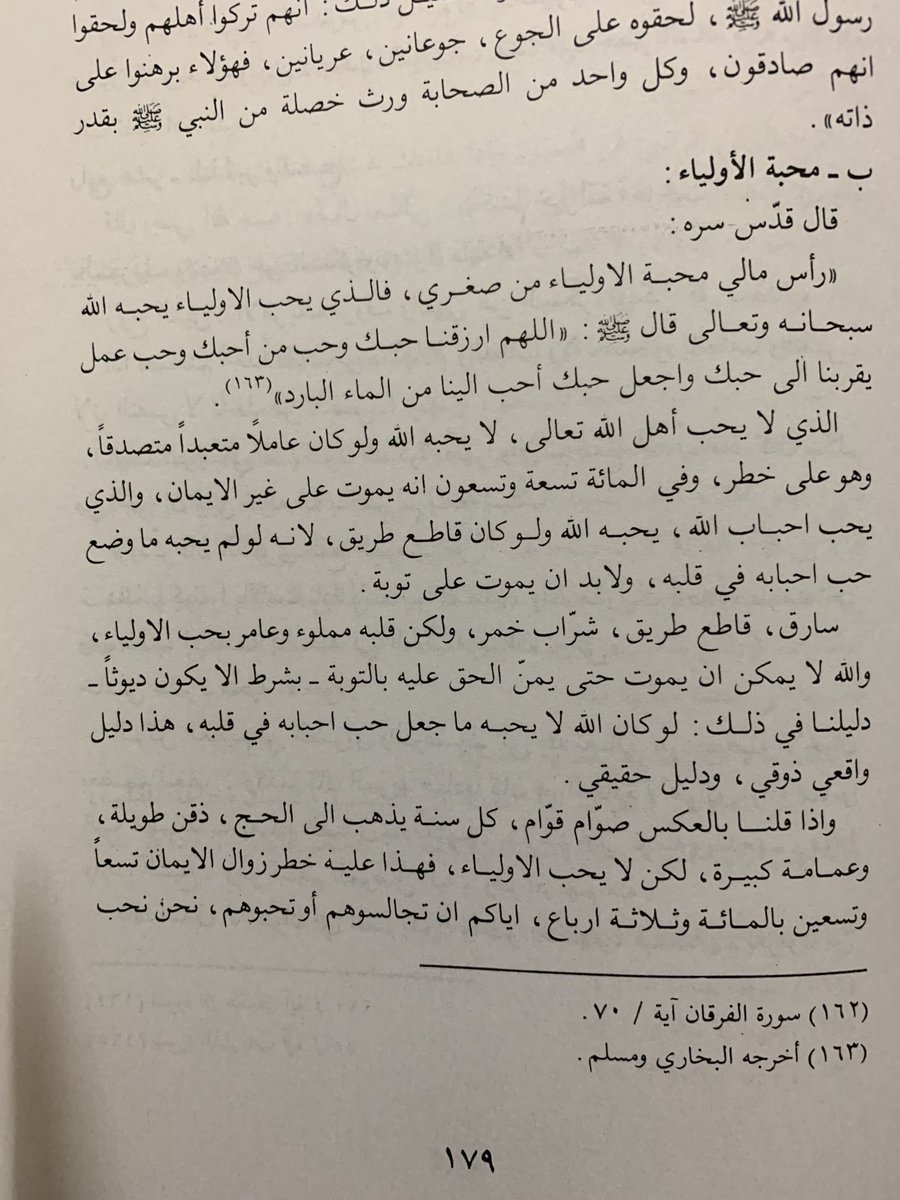 ذلك : انهم تركوا أهلهم ولحقوا
رسول الله ﷺ ، لحقوه على الجوع ، جوعانين ، عريانين ، فهؤلاء برهنوا على
انهم صادقون ، وكل واحد من الصحابة ورث خصلة من النبي ﷺ بقدر
ذاته» .
ب ـ محبة الأولياء :
قال قدّس سره :
«رأس مالي محبة الاولياء من صغري ، فالذي يحب الاولياء يحبه الله
سبحانه وتعالى قال ﷺ : «اللهم ارزقنا حبك وحب من أحبك وحب عمل
يقربنا الى حبك واجعل حبك أحب الينا من الماء البارد»(١٦٣) .
الذي لا يحب أهل الله تعالى ، لا يحبه الله ولو كان عاملاً متعبداً متصدقاً ،
وهو على خطر ، وفي المائة تسعة وتسعون انه يموت على غير الايمان ، والذي
يحب احباب الله ، يحبه الله ولو كان قاطع طريق ، لانه لو لم يحبه ما وضع
حب احبابه في قلبه ، ولابد ان يموت على توبة .
سارق ، قاطع طريق ، شرّاب خمر ، ولكن قلبه مملوء وعامر بحب الاولياء ،
والله لا يمكن ان يموت حتى يمنّ الحق عليه بالتوبة ـ بشرط الا يكون ديوثاً ـ
دليلنا في ذلك : لو كان الله لا يحبه ما جعل حب احبابه في قلبه ، هذا دليل
واقعي ذوقي ، ودليل حقيقي .
واذا قلنا بالعكس صوّام قوّام ، كل سنة يذهب الى الحج ، ذقن طويلة ،
وعمامة كبيرة ، لكن لا يحب الاولياء ، فهذا عليه خطر زوال الايمان تسعاً
وتسعين بالمائة وثلاثة ارباع ، اياكم ان تجالسوهم أو تحبوهم ، نحن نحب
(١٦٢) سورة الفرقان آية / ٧٠ .
(١٦٣) أخرجه البخاري ومسلم .
١٧٩